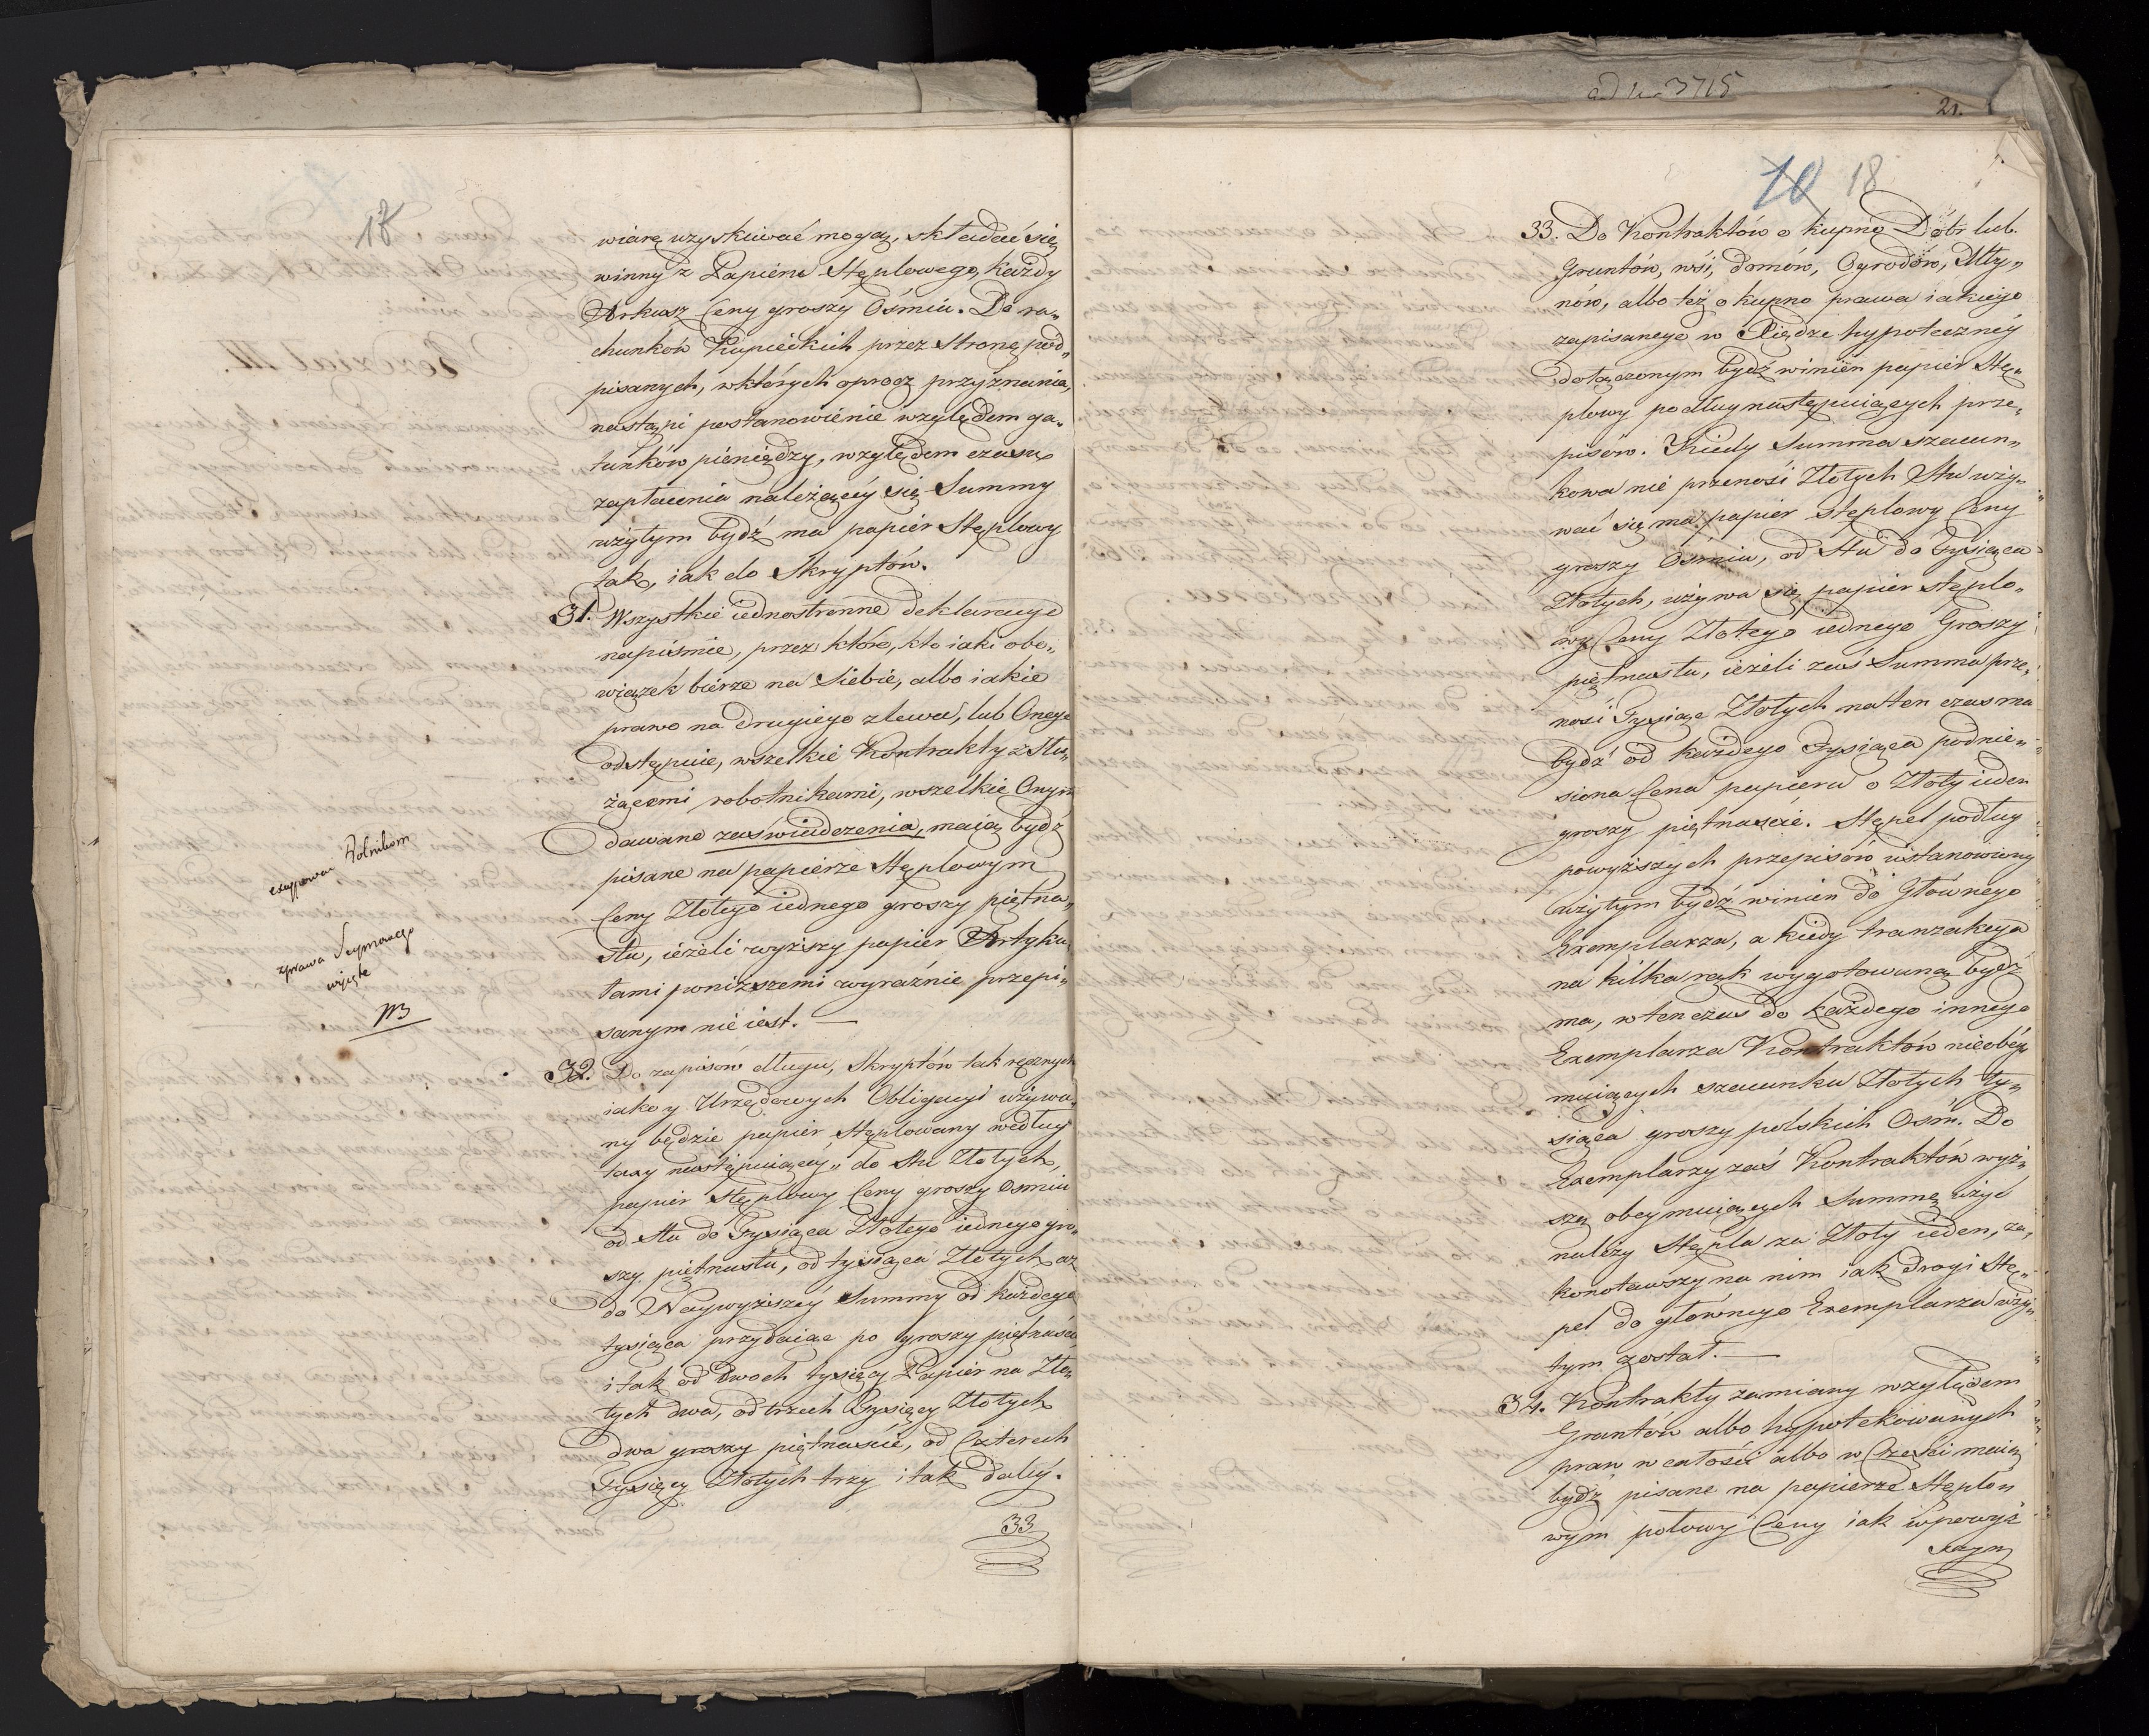 18
wiarę uzyskiwać mogą, składać się
winny z Papieru Stęplowego, każdy
Arkusz Ceny groszy Ośmiu. Do ra„
chunków Kupieckich przez Stronę pod„
pisanych, w których oprocz przyznania,
nastąpi postanowienie względem ga„
tunków pieniędzy, względem czasu
zapłacenia należącéy się Summy
użytym bydź ma papiér Stęplowy
tak, iak do Skryptów.
31. Wszystkie iednostronne deklaracye
napiśmie, przez które, kto iaki obo„
wiązek bierze na Siebie, albo iakie
prawo na drugiego zlewa, lub Onego
odstępuie, wszelkie Kontrakty z Słu„
żącemi, robotnikami, wszelkie Onym
dawane zaświadczenia, maią bydź
pisane na papierze Stęplowym
Ceny Złotego iednego groszy piętna„
stu, ieżeli wyższy papiér Artyku„
łami poniższemi wyraźnie przepi„
sanym nie iest. —
Rolnikom
wyięte
NB
32. Do zapisów długu, Skryptów tak ręcznych
iako y Urzędowych Obligacyi używa„
ny będzie papiér Stęplowany według
taxy następuiącéy: do Stu Złotych,
papiér Stęplowy Ceny groszy Osmiu
od Stu do Tysiąca Złotego iednego gro„
szy piętnastu, od tysiąca Złotych aż
do Naywyższéy Summy od każdego
tysiąca przydaiąc po groszy piętnaście
i tak od dwóch tysięcy Papiér na Zło„
tych dwa, od trzech Tysięcy Złotych
dwa groszy piętnaście, od Czterech
Tysięcy Złotych trzy i tak daléy.
33
ad No 3715
21.
10 18
33. Do Kontraktów o kupno Dóbr lub
Gruntów, wsi, domów, Ogrodów, Mły„
nów, albo też o kupno prawa iakiego
zapisanego w Xiędze hypotecznéy
dołączonym bydź winien papiér Stę„
plowy podług następuiących prze„
pisów. Kiedy Summa szacun„
kowa nie przenosi Złotych Stu uży„
wać się ma papier Stęplowy Ceny
groszy Ośmiu, od Stu do Tysiąca
Złotych, używa się papier stęplo„
wy Ceny Złotego iednego Groszy
piętnastu, ieżeli zaś Summa prze„
nosi Tysiąc Złotych na ten czas ma
bydź od każdego Tysiąca podnie„
siona Cena papieru o Złoty ieden
groszy piętnaście. Stępel podług
powyższych przepisów ustanowiony
użytym bydź winien do Głównego
Exemplarza, a kiedy tranzakcya
na kilka rąk wygotowaną bydź
ma, wten czas do każdego innego
Exemplarza Kontraktów nieobéy„
muiących szacunku Złotych ty„
siąca groszy polskich Ośm. Do
Exemplarzy zaś Kontraktów wyż„
szą obeymuiących Summę użyć
należy Stępla za Złoty ieden, za„
konotawszy na nim iak drogi Stę„
pel do głównego Exemplarza uży„
tym został. —
34. Kontrakty zamiany względem
Gruntów albo hypotekowanych
praw w całości albo w Części maią
bydź pisane na papierze Stęplo„
wym połowy Ceny iak w powyż